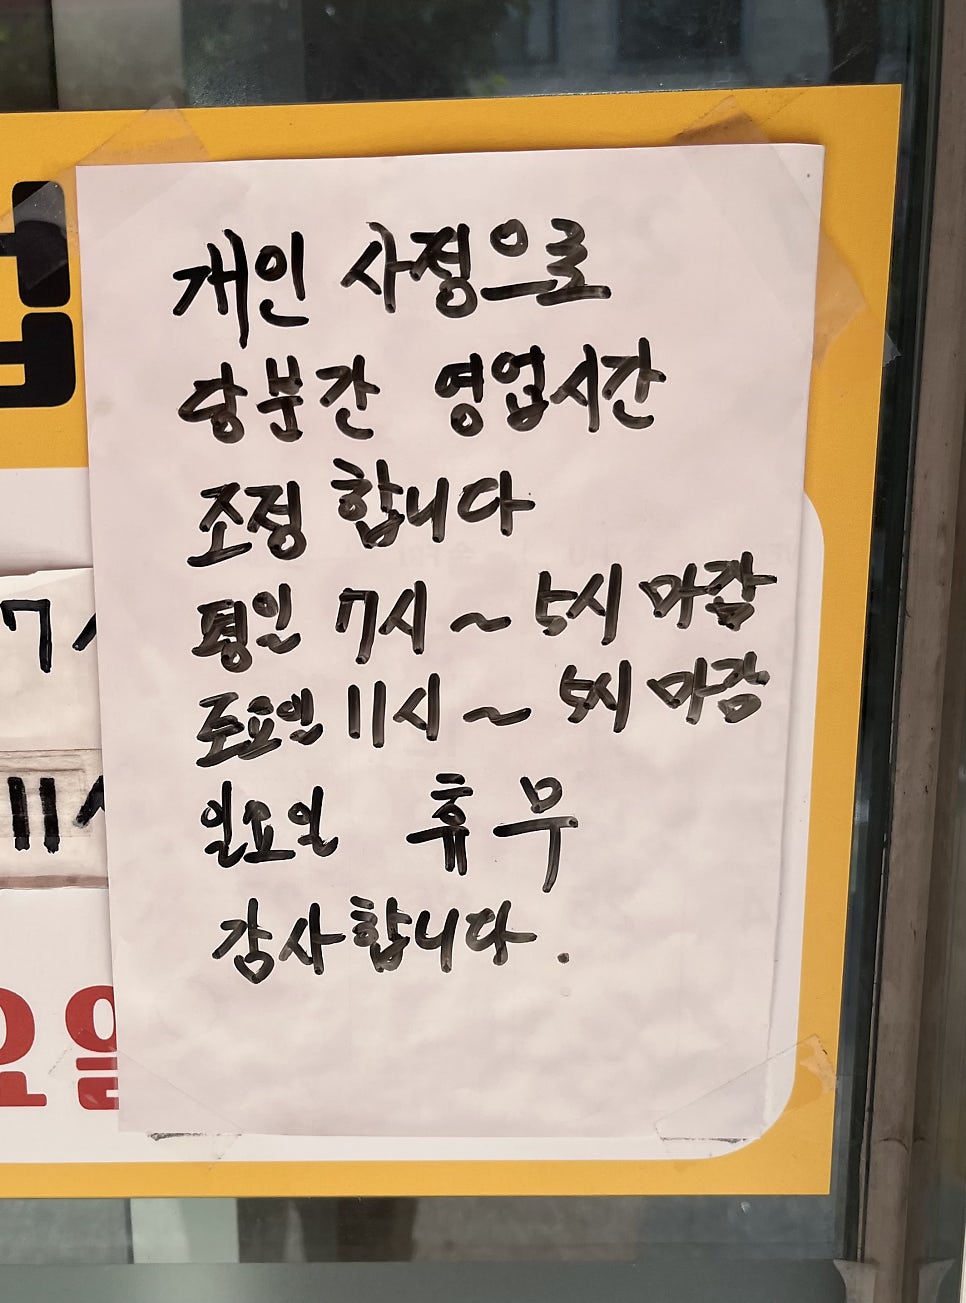 개인 사정으로
당분간 영업시간
조정 합니다
평일 7시 ~ 5시 마감
토요일 11시 ~ 5시 마감
일요일 휴무
감사합니다.
7
11
요일